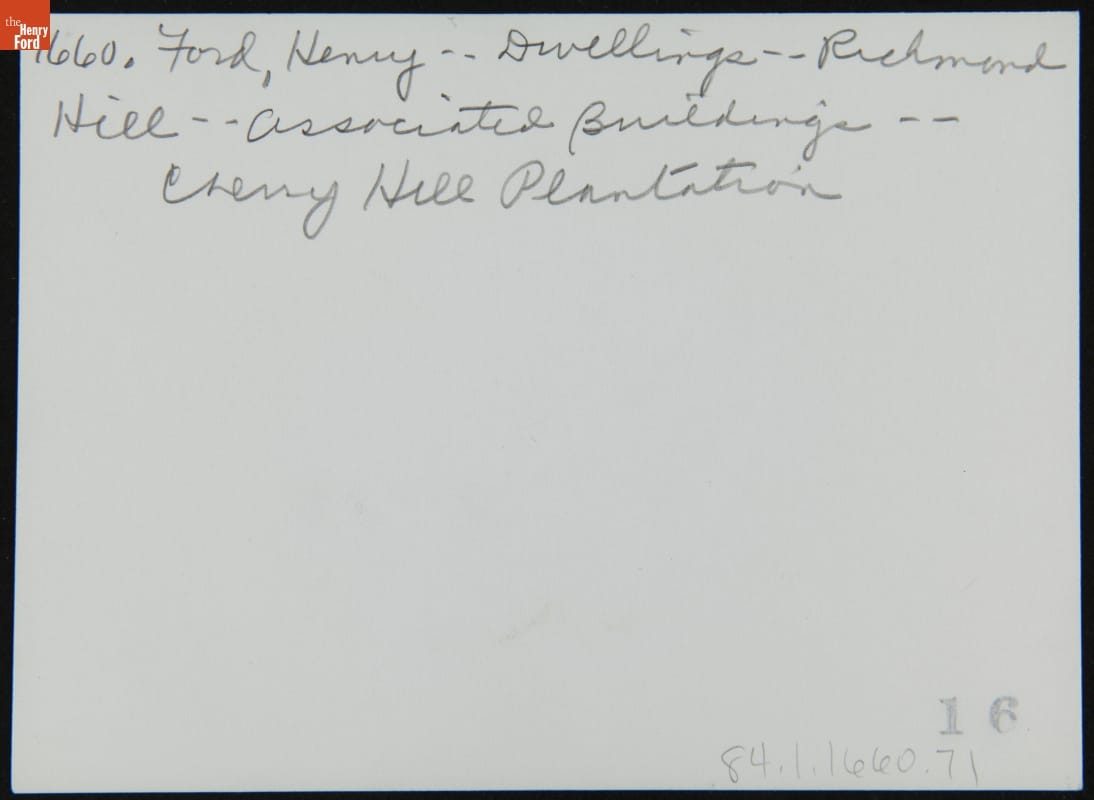 the
Henry
Ford
1660. Ford, Henry -- Dwellings -- Richmond
Hill -- Associated Buildings --
Cherry Hill Plantation
16
84.1.1660.71